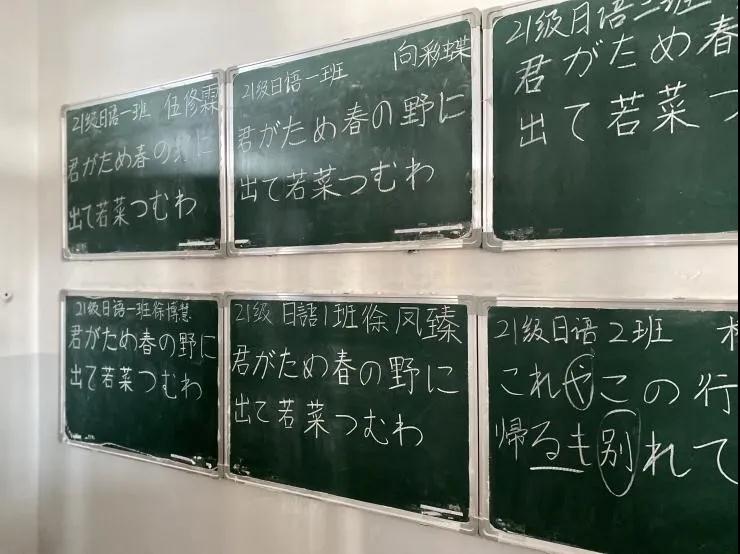 21级日语一班 伍修霖
君がため春の野に
出て若菜つむわ
21级日语一班 向彩蝶
君がため春の野に
出て若菜つむわ
21级日语二班
君がため春
出て若菜つ
21级日语一班徐博慧
君がため春の野に
出て若菜つむわ
21级 日語1班徐凤臻
君がため春の野に
出て若菜つむわ
21级日语2班
これやこの行
帰るも別れて